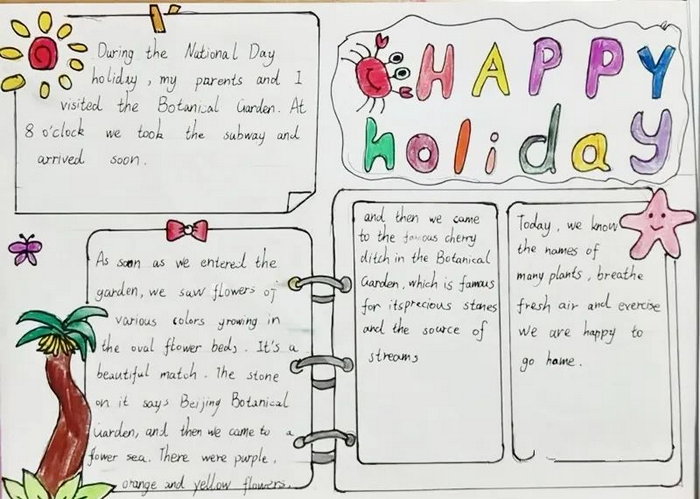 During the National Day
holiday, my parents and I
visited the Botanical Garden. At
8 o'clock we took the subway and
arrived soon.
HAPPY
holiday
As soon as we entered the
garden, we saw flowers of
various colors growing in
the oval flower beds. It's a
beautiful match. The stone
on it says Beijing Botanical
Garden, and then we came to a
flower sea. There were purple,
orange and yellow flowers.
and then we came
to the famous cherry
ditch in the Botanical
Garden, which is famous
for itsprecious stones
and the source of
streams
Today, we know
the names of
many plants, breathe
fresh air and exercise
We are happy to
go home.